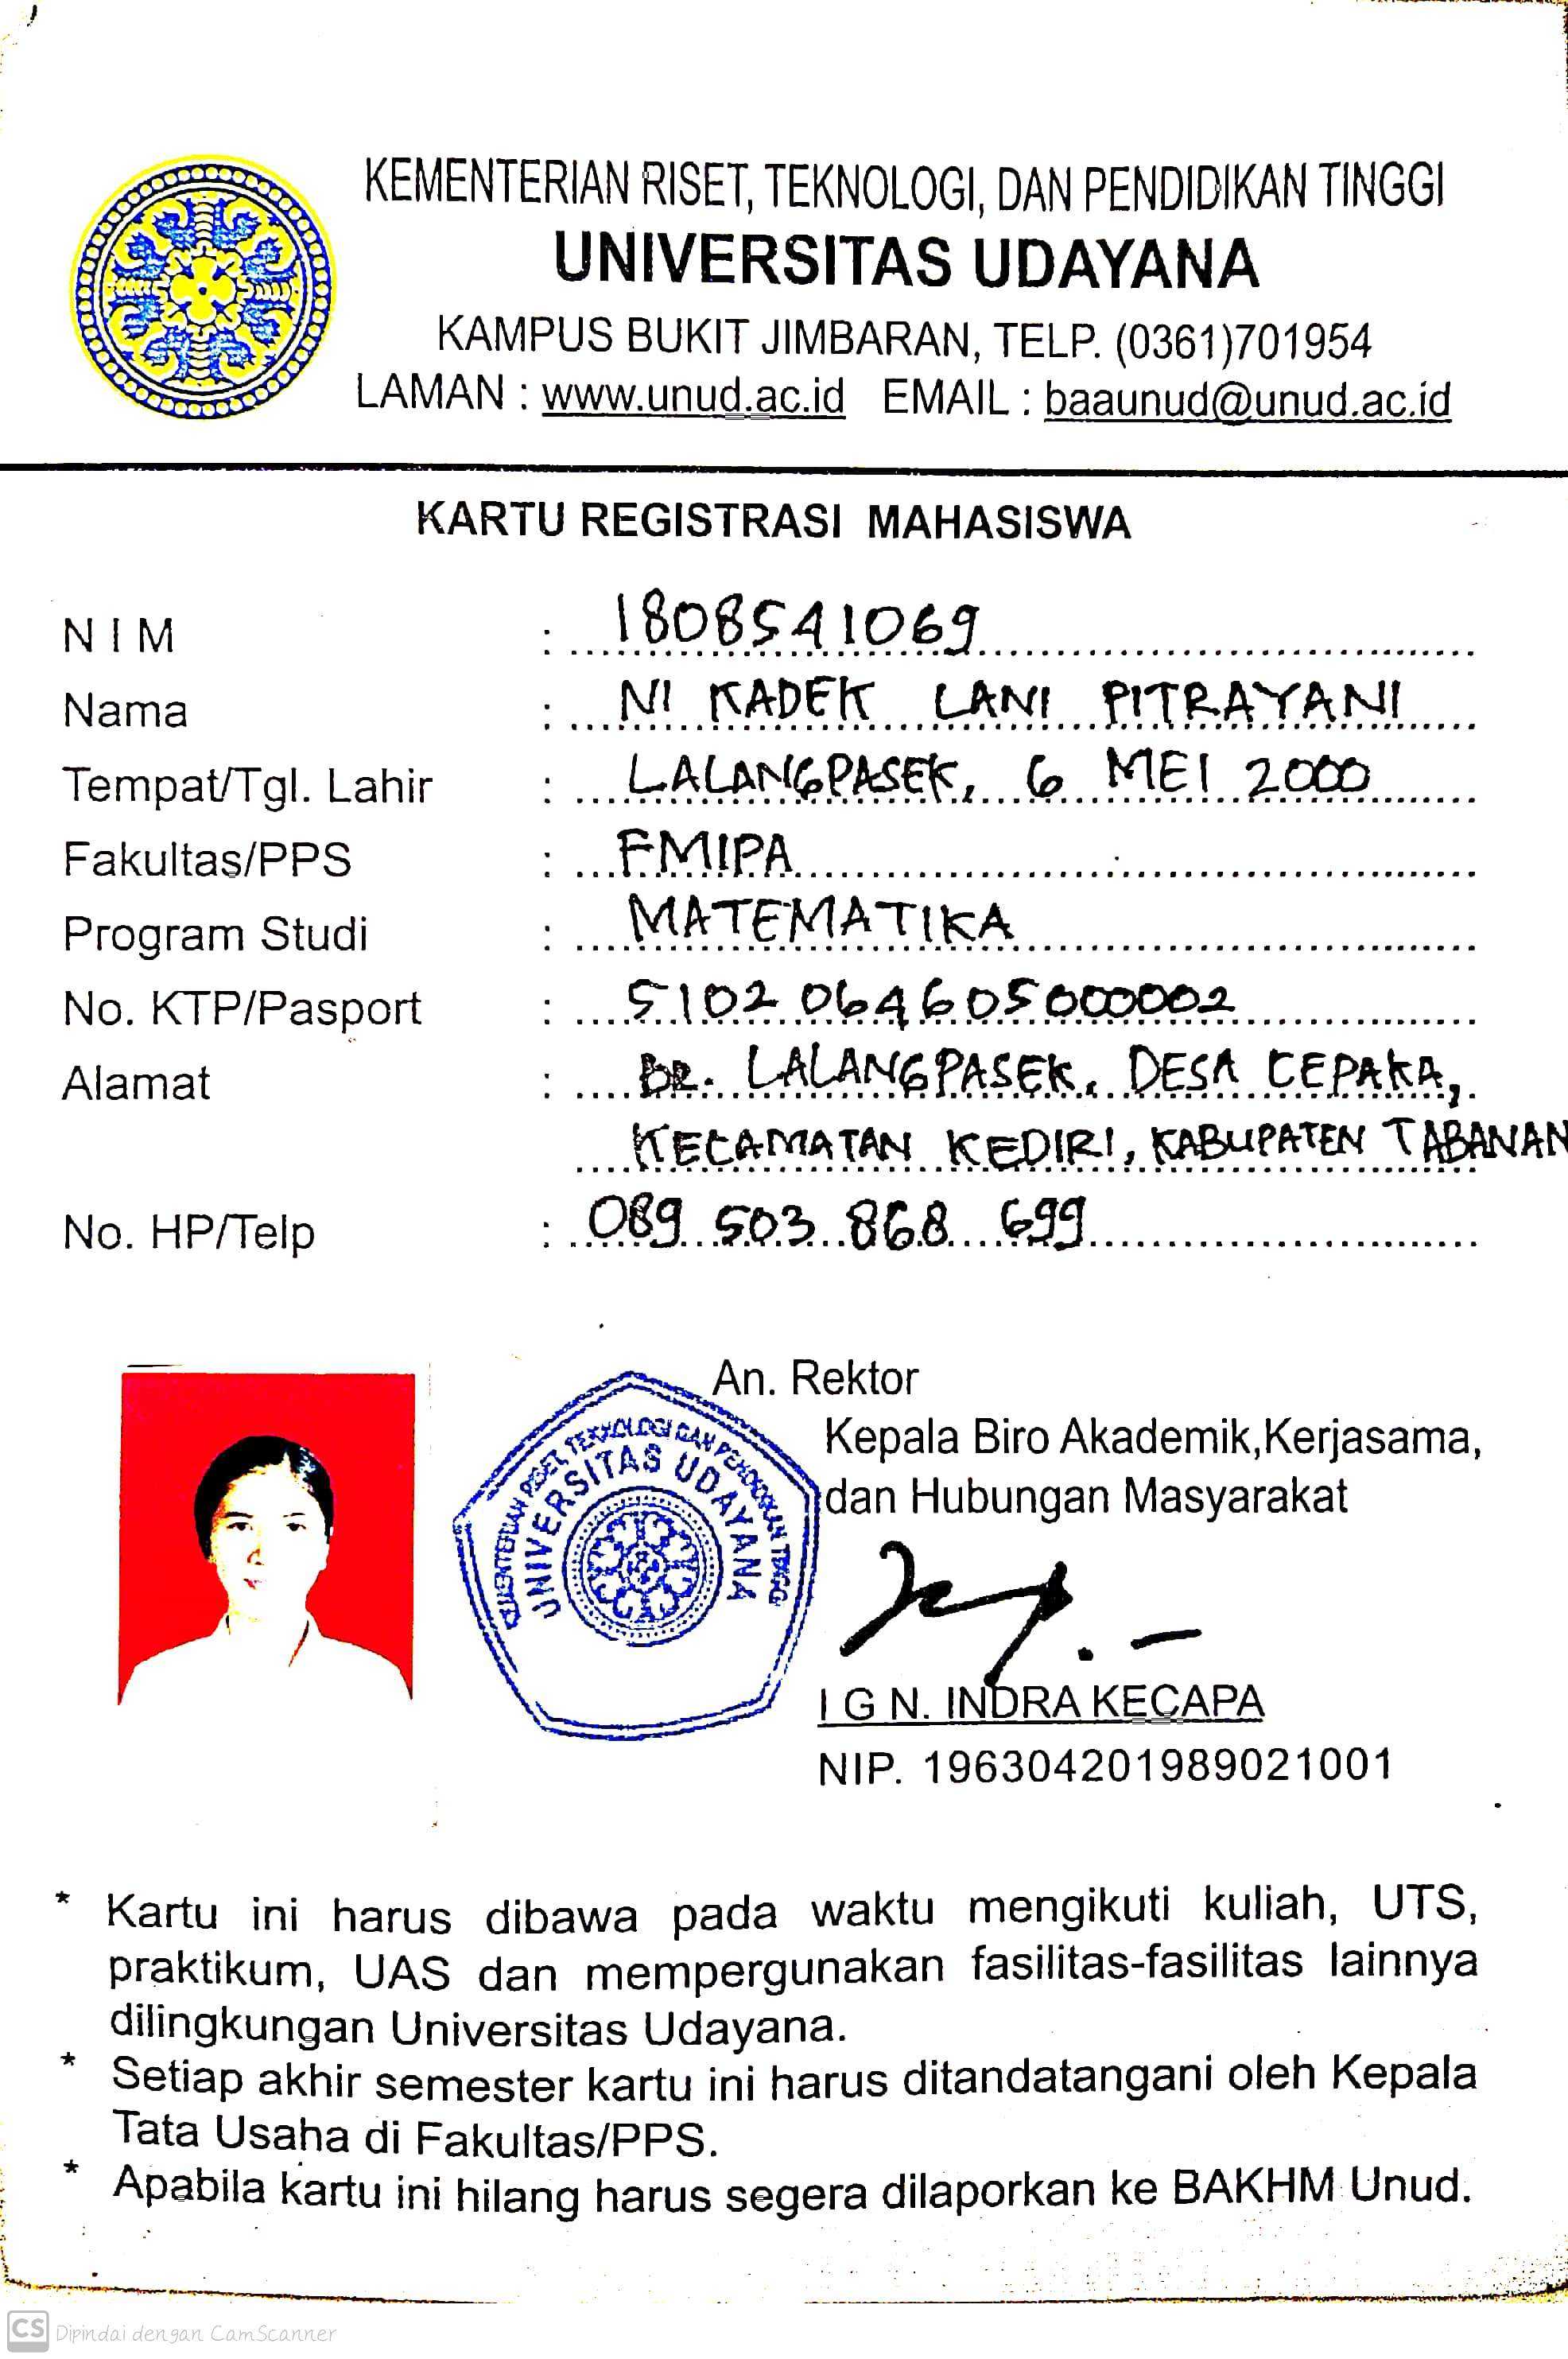 KEMENTERIAN RISET, TEKNOLOGI, DAN PENDIDIKAN TINGGI
UNIVERSITAS UDAYANA
KAMPUS BUKIT JIMBARAN, TELP. (0361)701954
LAMAN : www.unud.ac.id EMAIL : baaunud@unud.ac.id
KARTU REGISTRASI MAHASISWA
N I M : 1808541069
Nama : NI KADEK LANI PITRAYANI
Tempat/Tgl. Lahir : LALANGPASEK, 6 MEI 2000
Fakultas/PPS : FMIPA
Program Studi : MATEMATIKA
No. KTP/Pasport : 5102 064605000002
Alamat : BR. LALANGPASEK, DESA CEPAKA,
KECAMATAN KEDIRI, KABUPATEN TABANAN
No. HP/Telp : 089 503 868 699
An. Rektor
Kepala Biro Akademik,Kerjasama,
dan Hubungan Masyarakat
KEMENTERIAN RISET, TEKNOLOGI DAN PENDIDIKAN TINGGI
UNIVERSITAS UDAYANA
I G N. INDRA KECAPA
NIP. 196304201989021001
* Kartu ini harus dibawa pada waktu mengikuti kuliah, UTS,
praktikum, UAS dan mempergunakan fasilitas-fasilitas lainnya
dilingkungan Universitas Udayana.
* Setiap akhir semester kartu ini harus ditandatangani oleh Kepala
Tata Usaha di Fakultas/PPS.
* Apabila kartu ini hilang harus segera dilaporkan ke BAKHM Unud.
CS Dipindai dengan CamScanner